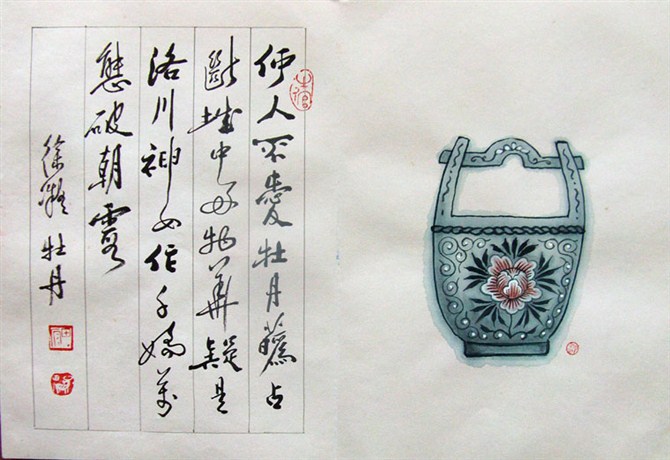 何人不愛牡丹蘤占
斷城中好物華疑是
洛川神女作千嬌萬
態破朝霞
徐凝 牡丹